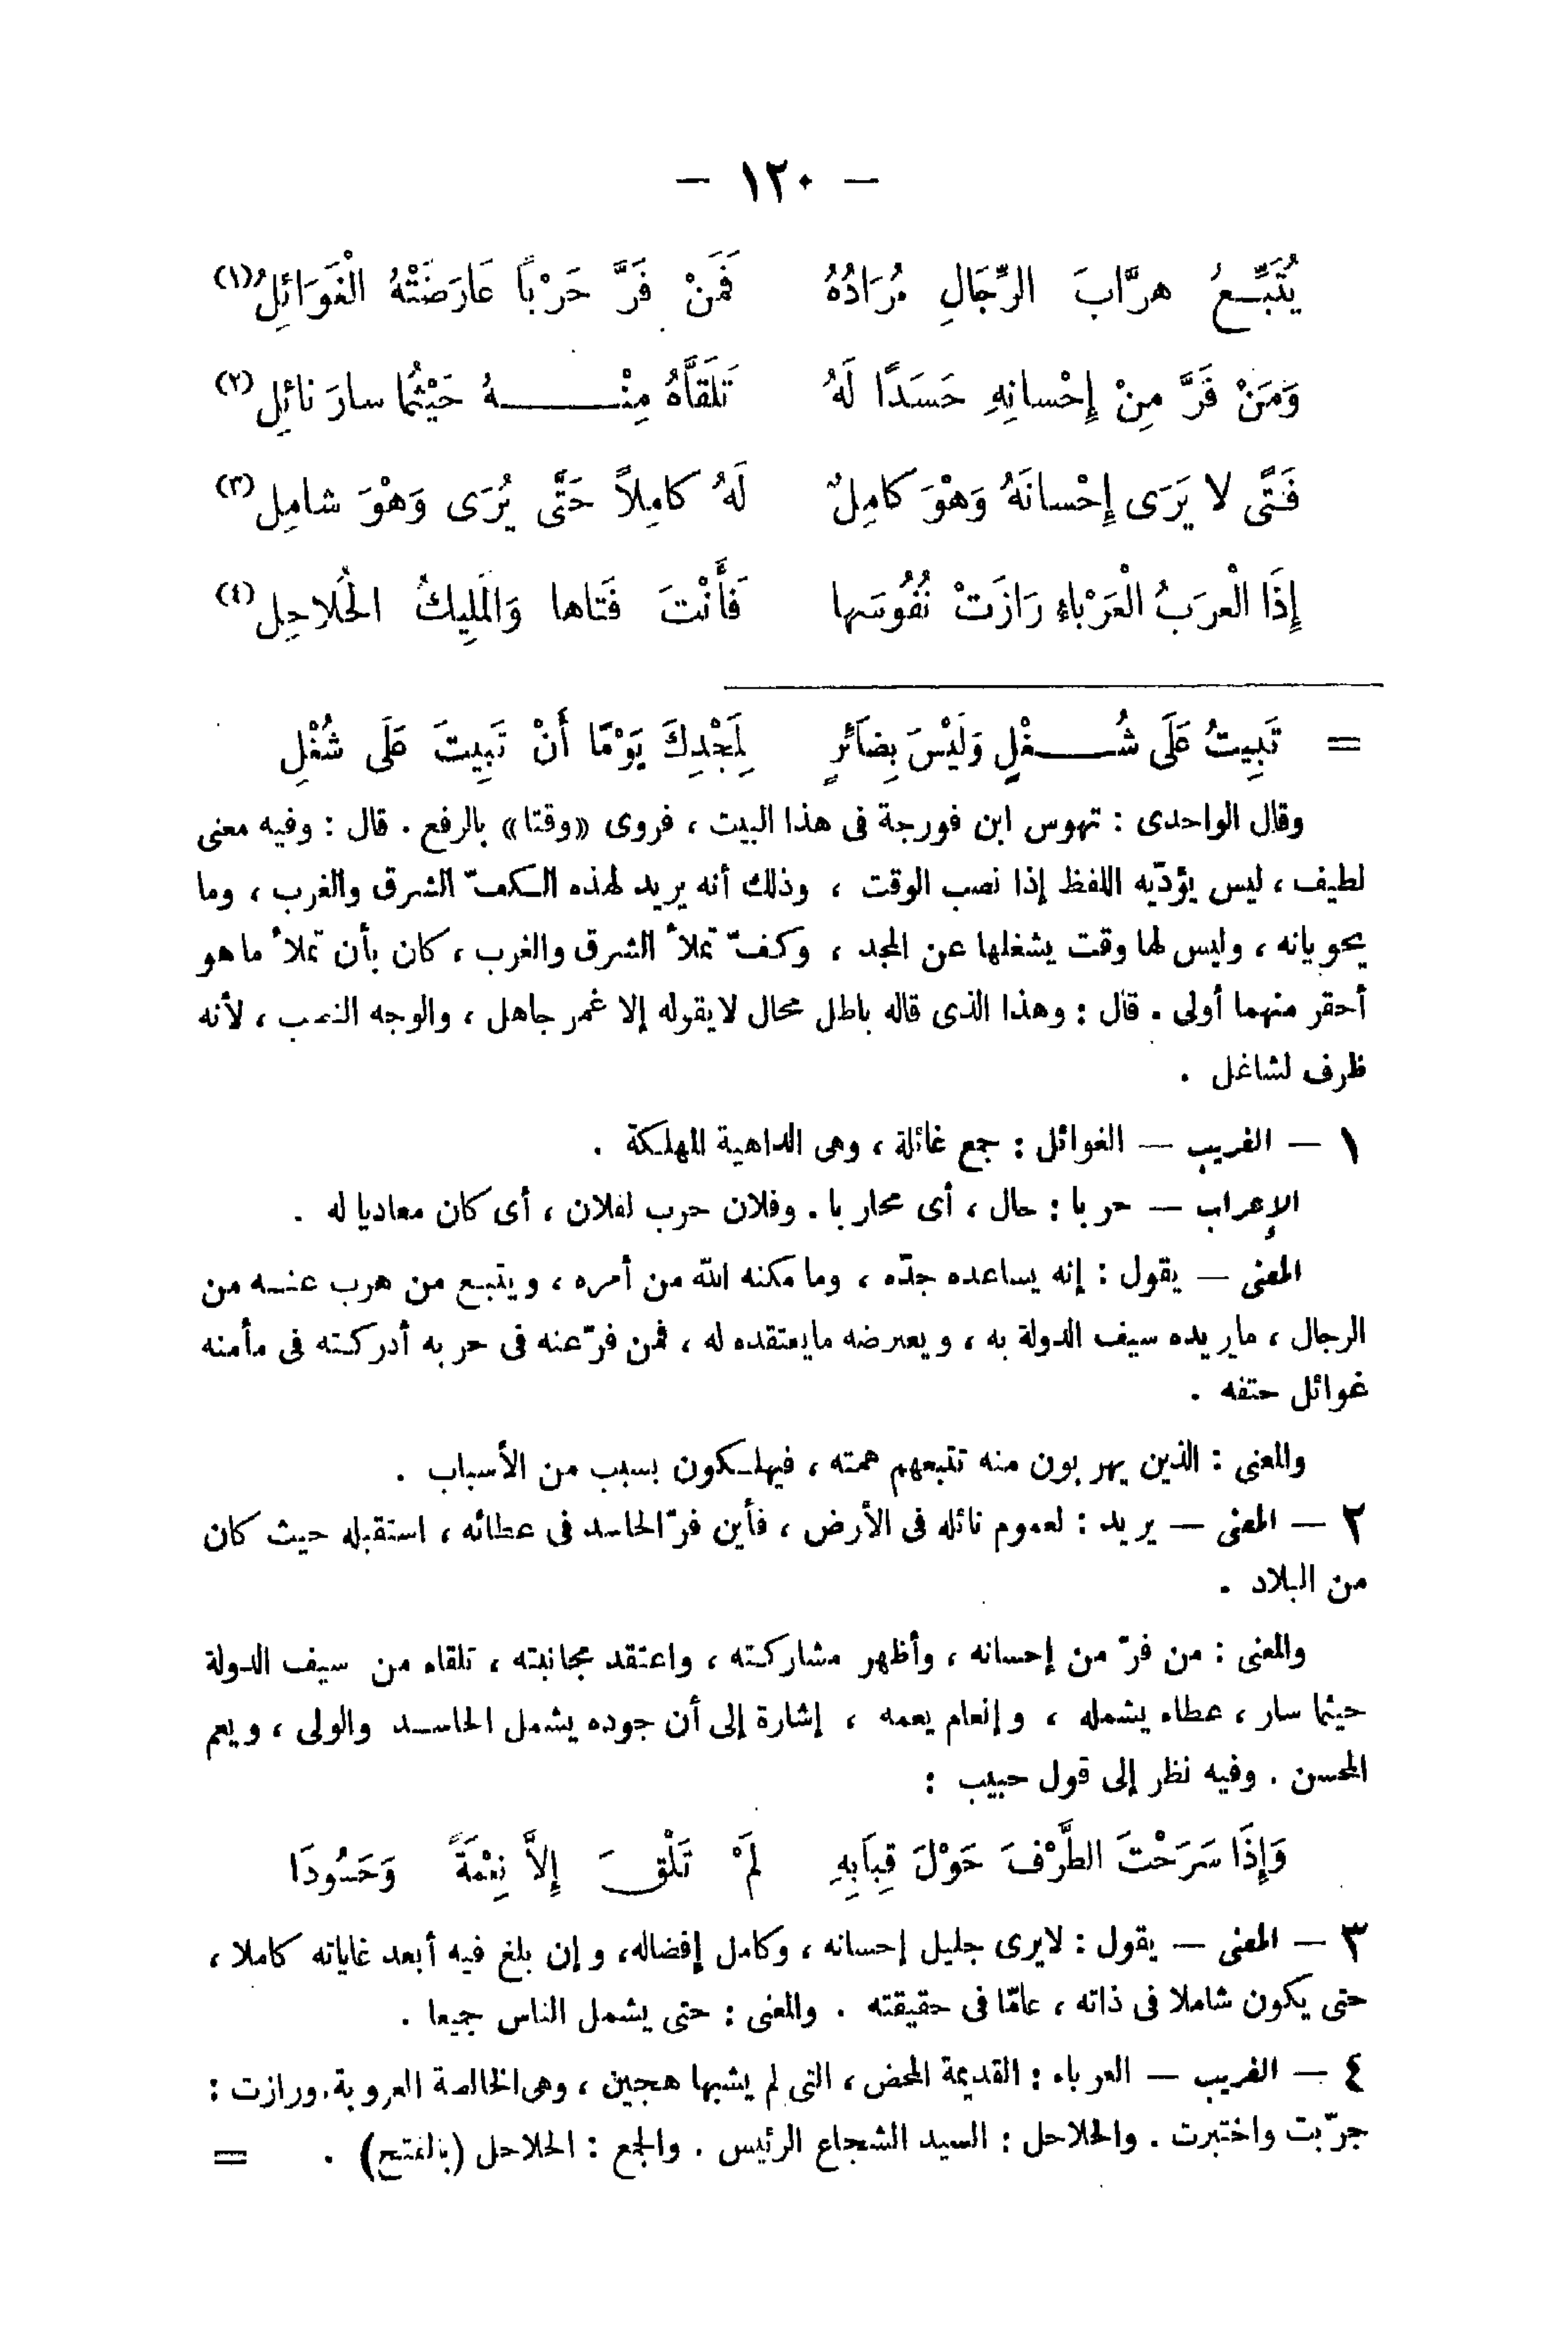 — ١٢٠ —
يُتَبِّعُ هرَّابَ الرِّجَالِ مُرَادُهُ فَمَنْ فَرَّ حَرْبًا عَارَضَتْهُ الْغَوَائِلُ(١)
وَمَنْ فَرَّ مِنْ إِحْسانِهِ حَسَدًا لَهُ تَلَقَّاهُ مِنْـــهُ حَيْثُما سارَ نائِلُ(٢)
فَتًى لا يَرَى إِحْسانَهُ وَهْوَ كامِلٌ لَهُ كامِلاً حَتَّى يُرَى وَهْوَ شامِلُ(٣)
إِذَا الْعرَبُ الْعَرْباءِ رَازَتْ نُفُوسَها فَأَنْتَ فَتاها وَالمَلِيكُ الحُلاحِلُ(٤)
= تَبِيتُ عَلَى شُـــغْلٍ وَلَيْسَ بِضَائرٍ لِمَجْدِكَ يَوْمًا أَنْ تَبِيتَ عَلَى شُغْلِ
وقال الواحدى : تهوس ابن فورجة فى هذا البيت ، فروى «وقتا» بالرفع . قال : وفيه معنى
لطيف ، ليس يؤدّيه اللفظ إذا نصب الوقت ، وذلك أنه يريد لهذه الكفّ الشرق والغرب ، وما
يحويانه ، وليس لها وقت يشغلها عن المجد ، وكفّ تملأ الشرق والغرب ، كان بأن تملأ ما هو
أحقر منهما أولى . قال : وهذا الذى قاله باطل محال لايقوله إلا غمر جاهل ، والوجه النصب ، لأنه
ظرف لشاغل .
١ — الغريب — الغوائل : جمع غائلة ، وهى الداهية المهلكة .
الإعراب — حربا : حال ، أى محاربا . وفلان حرب لفلان ، أى كان معاديا له .
المعنى — يقول : إنه يساعده جدّه ، وما مكنه الله من أمره ، ويتبع من هرب عنه من
الرجال ، مايريده سيف الدولة به ، ويعرضه مايعتقده له ، فمن فرّ عنه فى حربه أدركته فى مأمنه
غوائل حتفه .
والمعنى : الذين يهربون منه تتبعهم همته ، فيهلكون بسبب من الأسباب .
٢ — المعنى — يريد : لعموم نائله فى الأرض ، فأين فرّ الحاسد فى عطائه ، استقبله حيث كان
من البلاد .
والمعنى : من فرّ من إحسانه ، وأظهر مشاركته ، واعتقد مجانبته ، تلقاه من سيف الدولة
حيثما سار ، عطاء يشمله ، وإنعام يعمه ، إشارة إلى أن جوده يشمل الحاسد والولى ، ويعم
المحسن . وفيه نظر إلى قول حبيب :
وَإِذَا سَرَحْتَ الطَّرْفَ حَوْلَ قِبَابِهِ لَمْ تَلْقَ إِلاَّ نِعْمَةً وَحَسُودَا
٣ — المعنى — يقول : لايرى جليل إحسانه ، وكامل إفضاله، وإن بلغ فيه أبعد غاياته كاملا ،
حتى يكون شاملا فى ذاته ، عامّا فى حقيقته . والمعنى : حتى يشمل الناس جميعا .
٤ — الغريب — العرباء : القديمة المحض ، التى لم يشبها هجين ، وهى الخالصة العروبة. ورازت :
جرّبت واختبرت . والحلاحل : السيد الشجاع الرئيس . والجمع : الحلاحل (بالفتح) . =